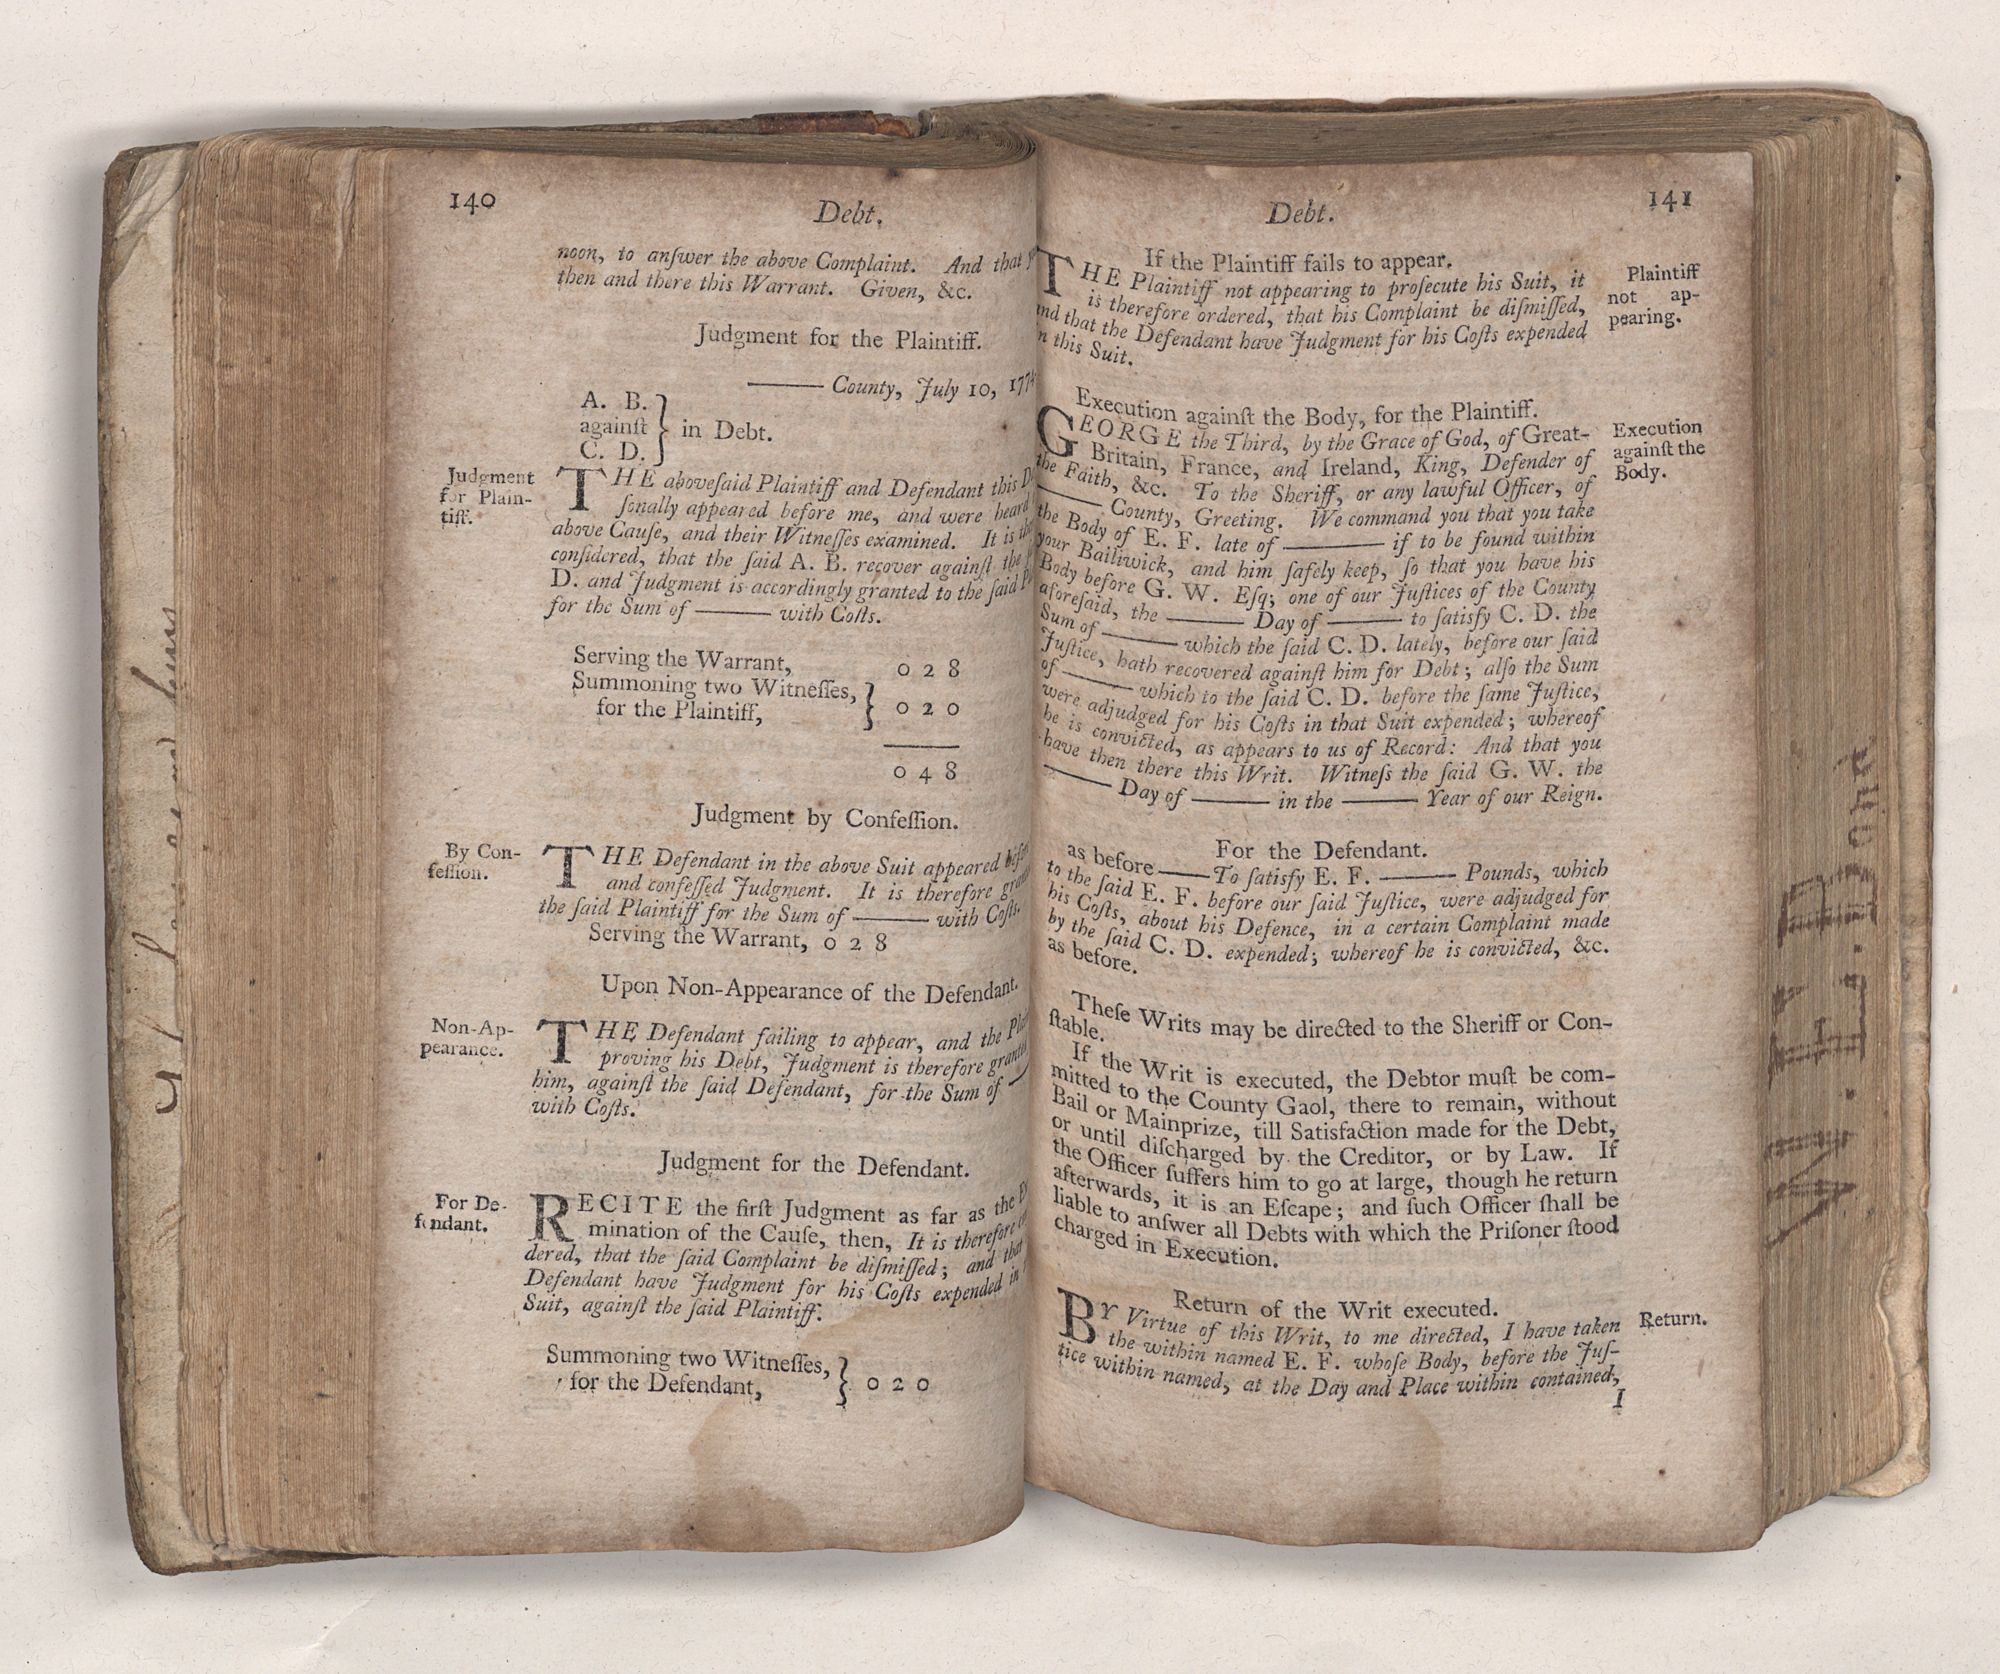 140
Debt.
noon, to anſwer the above Complaint. And that
then and there this Warrant. Given, &c.
Judgment for the Plaintiff.
——— County, July 10, 177
A. B.
againſt
C. D.
} in Debt.
Judgment
for Plain-
tiff.
THE aboveſaid Plaintiff and Defendant this
ſonally appeared before me, and were heard
above Cauſe, and their Witneſſes examined. It is
conſidered, that the ſaid A. B. recover againſt the
D. and Judgment is accordingly granted to the ſaid
for the Sum of ——— with Coſts.
Serving the Warrant, 0 2 8
Summoning two Witneſſes,
for the Plaintiff, } 0 2 0
0 4 8
Judgment by Confeſſion.
By Con-
feſſion.
THE Defendant in the above Suit appeared
and confeſſed Judgment. It is therefore
the ſaid Plaintiff for the Sum of ——— with Coſts.
Serving the Warrant, 0 2 8
Upon Non-Appearance of the Defendant.
Non-Ap-
pearance.
THE Defendant failing to appear, and the
proving his Debt, Judgment is therefore
him, againſt the ſaid Defendant, for the Sum of —
with Coſts.
Judgment for the Defendant.
For De-
fendant.
RECITE the firſt Judgment as far as the
mination of the Cauſe, then, It is therefore
dered, that the ſaid Complaint be diſmiſſed; and that
Defendant have Judgment for his Coſts expended in
Suit, againſt the ſaid Plaintiff.
Summoning two Witneſſes,
for the Defendant, } 0 2 0
Debt.
141
If the Plaintiff fails to appear.
THE Plaintiff not appearing to proſecute his Suit, it
is therefore ordered, that his Complaint be diſmiſſed,
and that the Defendant have Judgment for his Coſts expended
in this Suit.
Plaintiff
not ap-
pearing.
Execution againſt the Body, for the Plaintiff.
GEORGE the Third, by the Grace of God, of Great-
Britain, France, and Ireland, King, Defender of
the Faith, &c. To the Sheriff, or any lawful Officer, of
——— County, Greeting. We command you that you take
the Body of E. F. late of ——— if to be found within
your Bailiwick, and him ſafely keep, ſo that you have his
Body before G. W. Eſq; one of our Juſtices of the County
aforeſaid, the ——— Day of ——— to ſatisfy C. D. the
Sum of ——— which the ſaid C. D. lately, before our ſaid
Juſtice, hath recovered againſt him for Debt; alſo the Sum
of ——— which to the ſaid C. D. before the ſame Juſtice,
were adjudged for his Coſts in that Suit expended; whereof
he is convicted, as appears to us of Record: And that you
have then there this Writ. Witneſs the ſaid G. W. the
——— Day of ——— in the ——— Year of our Reign.
Execution
againſt the
Body.
For the Defendant.
as before ——— To ſatisfy E. F. ——— Pounds, which
to the ſaid E. F. before our ſaid Juſtice, were adjudged for
his Coſts, about his Defence, in a certain Complaint made
by the ſaid C. D. expended; whereof he is convicted, &c.
as before.
Theſe Writs may be directed to the Sheriff or Con-
ſtable.
If the Writ is executed, the Debtor muſt be com-
mitted to the County Gaol, there to remain, without
Bail or Mainprize, till Satisfaction made for the Debt,
or until diſcharged by the Creditor, or by Law. If
the Officer ſuffers him to go at large, though he return
afterwards, it is an Eſcape; and ſuch Officer ſhall be
liable to anſwer all Debts with which the Priſoner ſtood
charged in Execution.
Return of the Writ executed.
BY Virtue of this Writ, to me directed, I have taken
the within named E. F. whoſe Body, before the Juſ-
tice within named, at the Day and Place within contained,
I
Return.